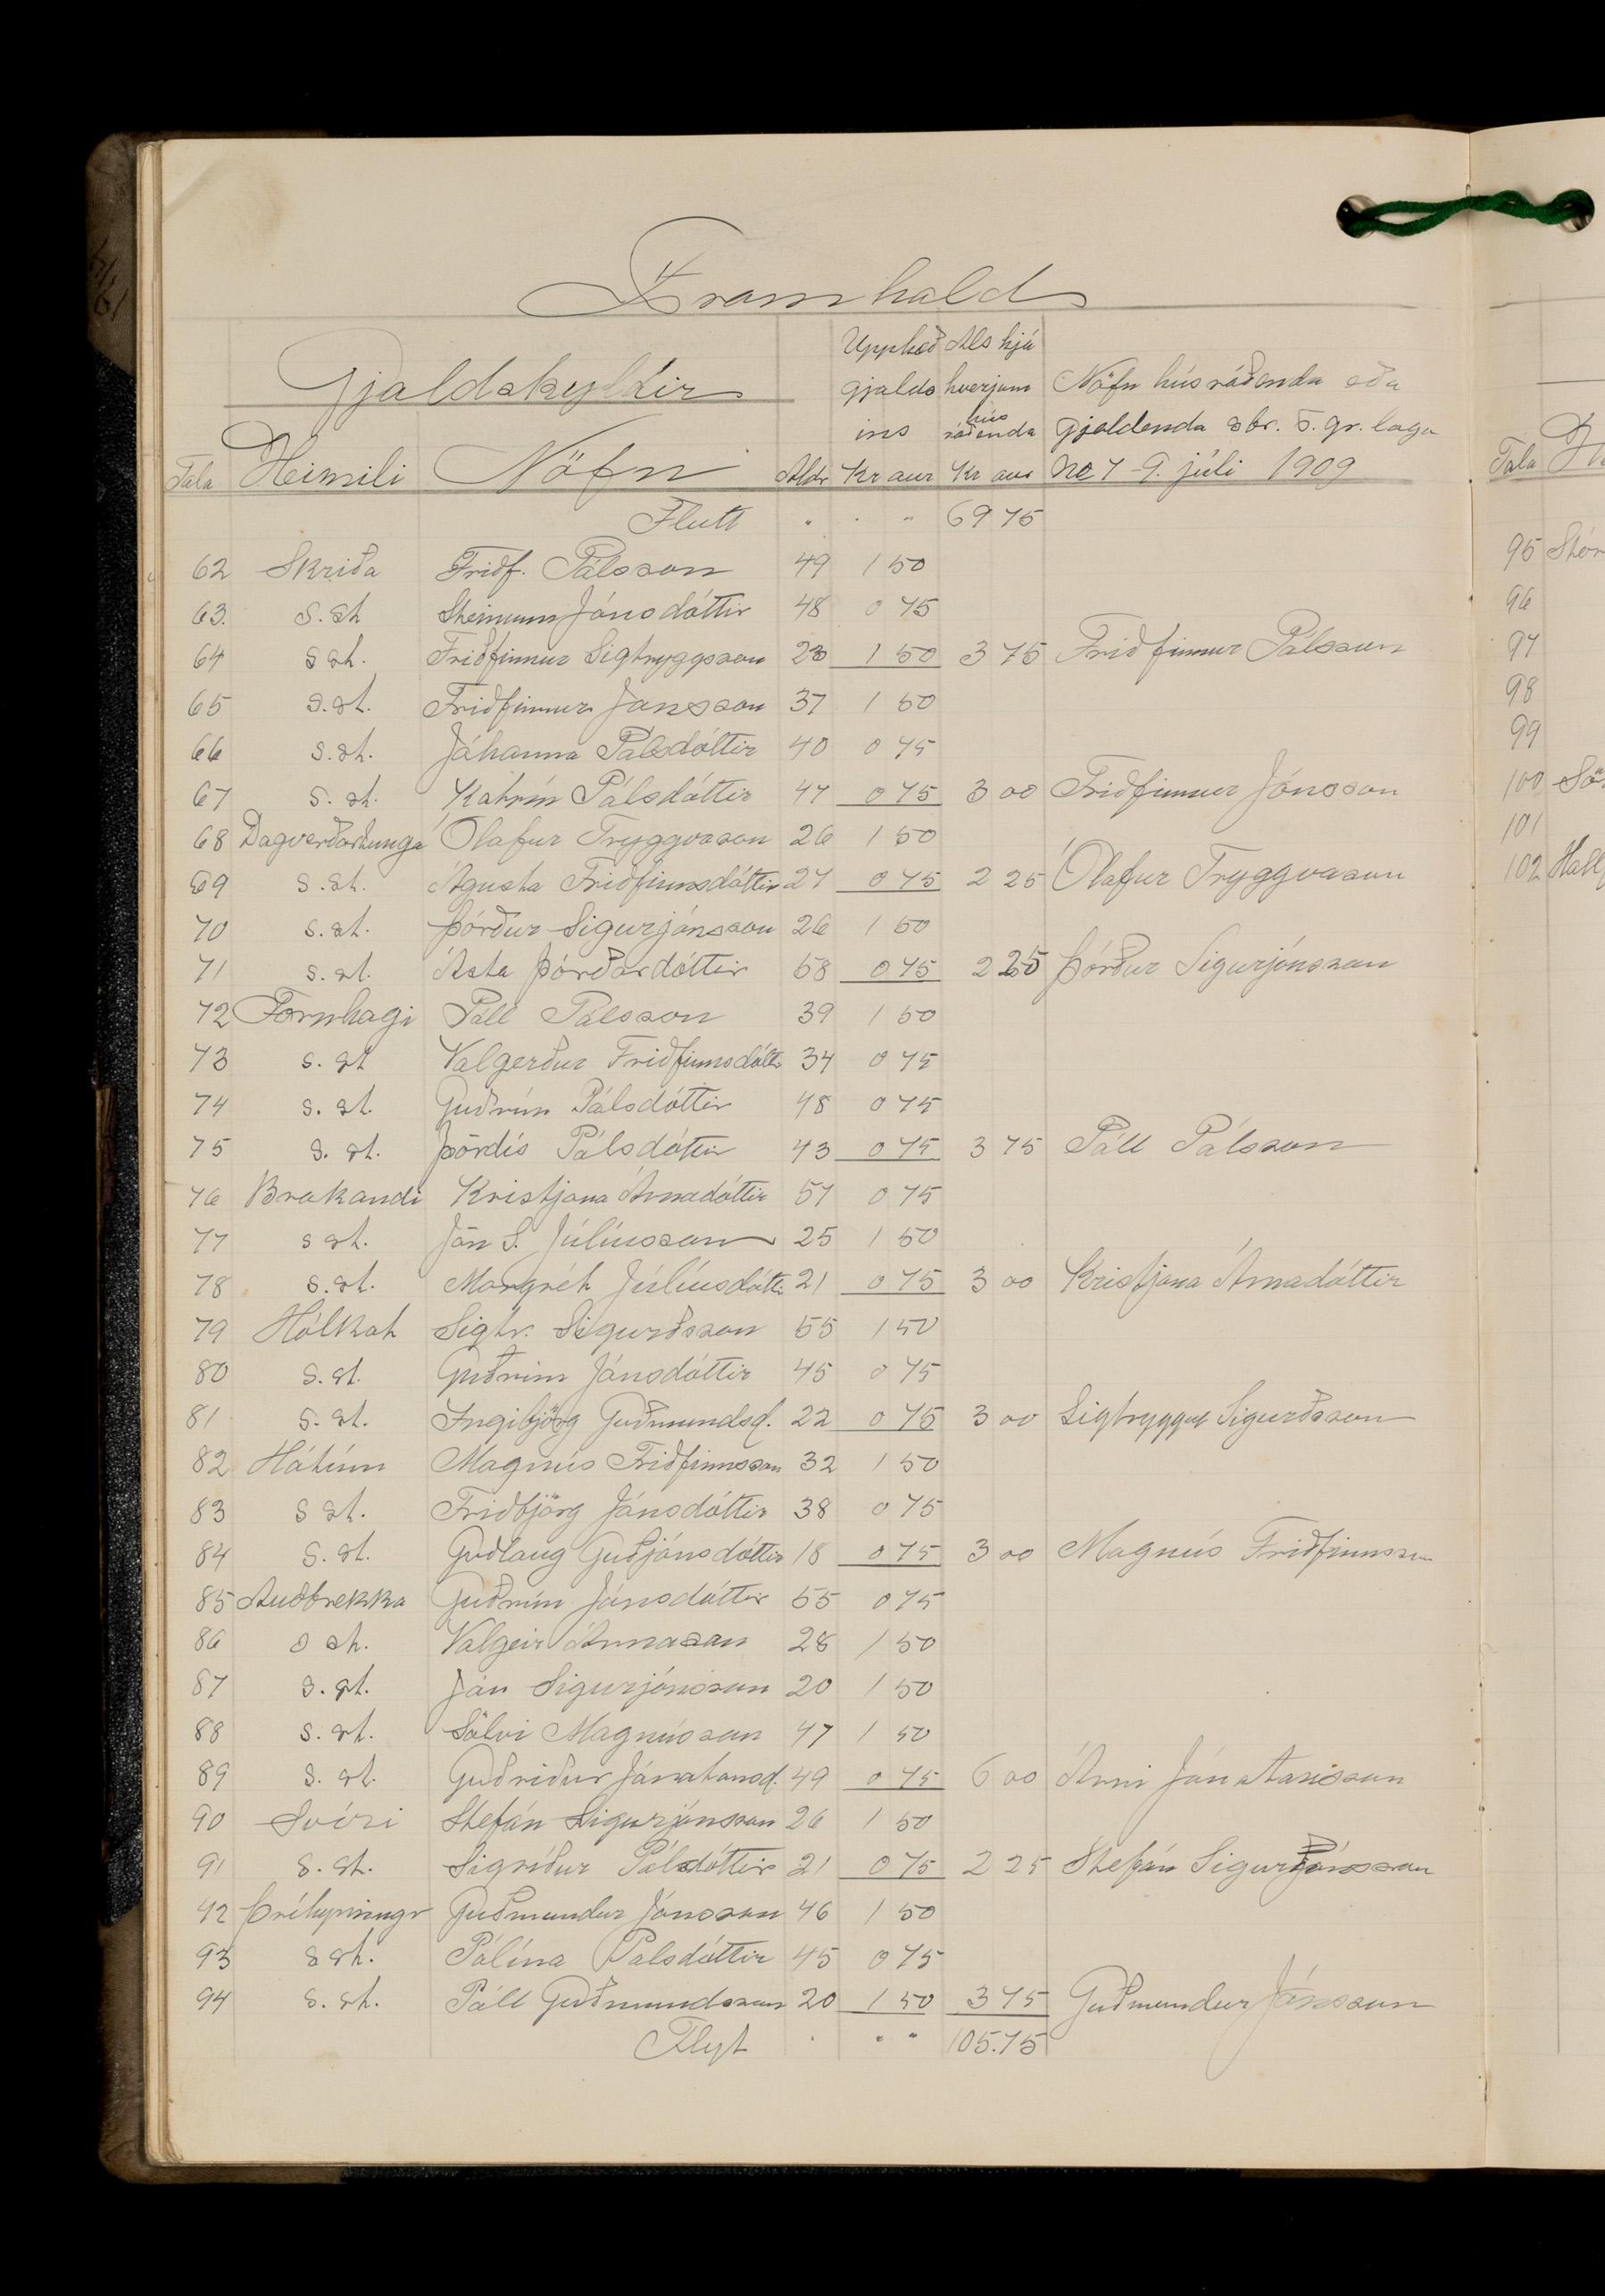 Framhald
Gjaldskyldir
Upphæð Als hjá
gjalds hverjum Nöfn húsráðenda eða
ins hús ráðenda gjaldenda sbr. 5. gr. laga
Tala Heimili Nöfn Aldr Kr aur Kr aur No 7 - 9. júli 1909
Flutt " " " 69 75
62 Skriða Friðf. Pálsson 49 1 50
63. s. st Steinunn Jónsdóttir 48 0 75
64 s st. Friðfinnur Sigtryggsson 23 1 50 3 75 Friðfinnur Pálsson
65 s. st. Friðfinnur Jónsson 37 1 50
66 s. st. Jóhanna Pálsdóttir 40 0 75
67 s. st. Katrín Pálsdóttir 47 0 75 3 00 Friðfinnur Jónsson
68 Dagverðartunga Ólafur Tryggvason 26 1 50
69 s. st. Ágústa Friðfinnsdóttir 27 0 75 2 25 Ólafur Tryggvason
70 s. st. Þórður Sigurjónsson 26 1 50
71 s. st. Ásta Þórðardóttir 58 0 75 2 25 Þórður Sigurjónsson
72 Fornhagi Páll Pálsson 39 1 50
73 s. st Valgerður Friðfinnsdóttir 34 0 75
74 s. st. Guðrún Pálsdóttir 48 0 75
75 s. st. Þórdís Pálsdóttir 43 0 75 3 75 Páll Pálsson
76 Brakandi Kristjana Árnadóttir 57 0 75
77 s st. Jón S. Júlíusson 25 1 50
78 s. st. Margrét Júlíusdóttir 21 0 75 3 00 Kristjana Árnadóttir
79 Hólkot Sigtr. Sigurðsson 55 1 50
80 s. st. Guðrún Jónsdóttir 45 0 75
81 s. st. Ingibjörg Guðmundsd. 22 0 75 3 00 Sigtryggur Sigurðsson
82 Hátún Magnús Friðfinnsson 32 1 50
83 s st. Friðbjörg Jónsdóttir 38 0 75
84 s. st. Guðlaug Guðjónsdóttir 18 0 75 3 00 Magnús Friðfinnsson
85 Auðbrekka Guðrún Jónsdóttir 55 0 75
86 s st. Valgeir Árnason 28 1 50
87 s. st. Jón Sigurjónsson 20 1 50
88 s. st. Sölvi Magnússon 47 1 50
89 s. st. Guðríður Jónatansd. 49 0 75 6 00 Árni Jónatansson
90 Stefán Sigurjónsson 26 1 50
91 s. st. Sigríður Pálsdóttir 21 0 75 2 25 Stefán Sigurjónsson
92 Þríhyrningr Guðmundur Jónsson 46 1 50
93 s st. Pálína Pálsdóttir 45 0 75
94 s. st. Páll Guðmundsson 20 1 50 3 75 Guðmundur Jónsson
Flyt " " " 105.75
Tala
95
96
97
98
99
100
101
102